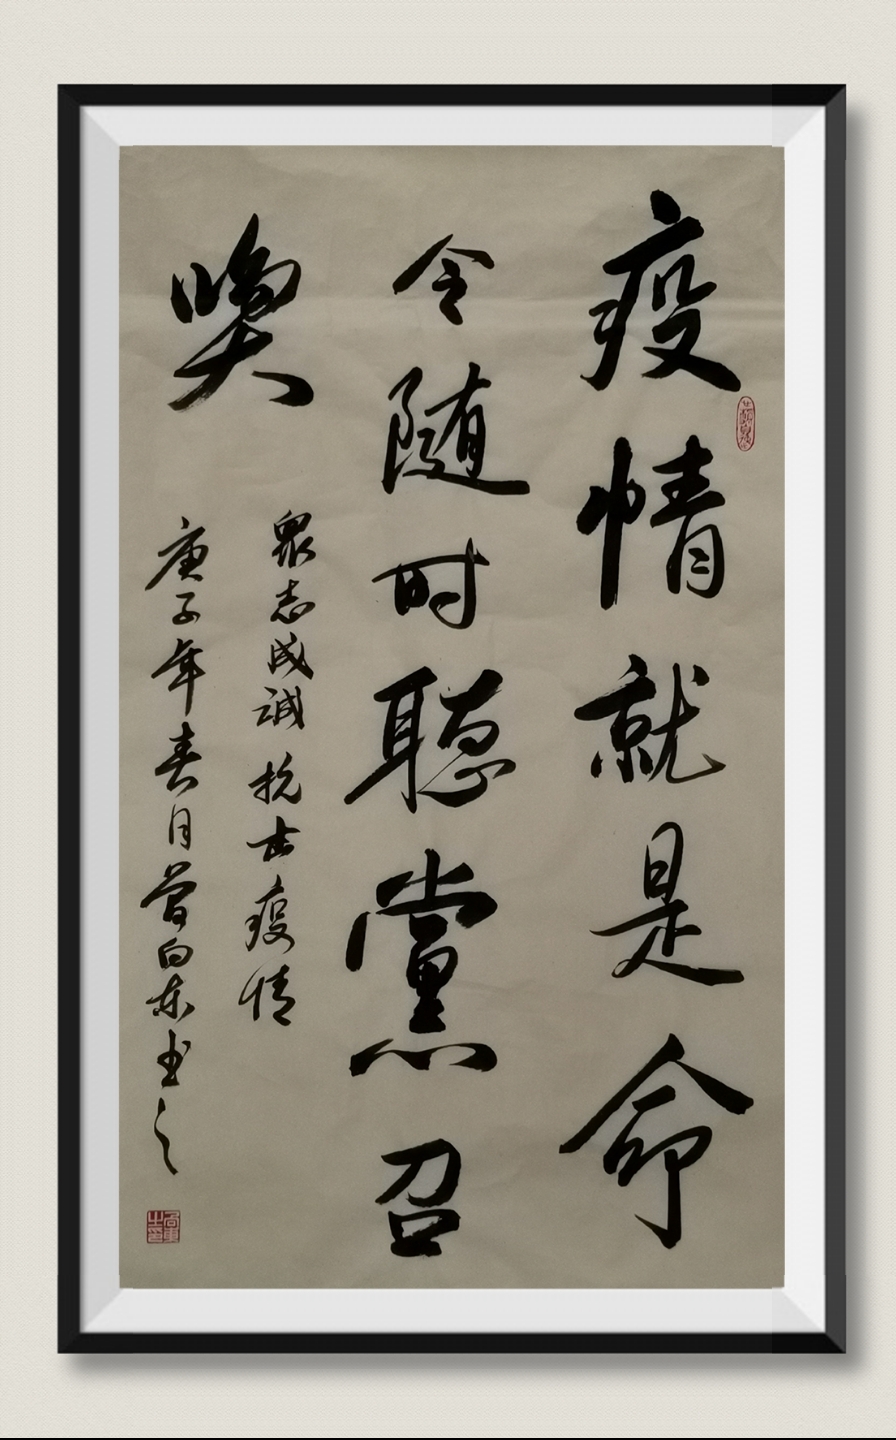 疫情就是命
令随时聴黨召
喚
眾志成诚抗击疫情
庚子年春月曾向东书之